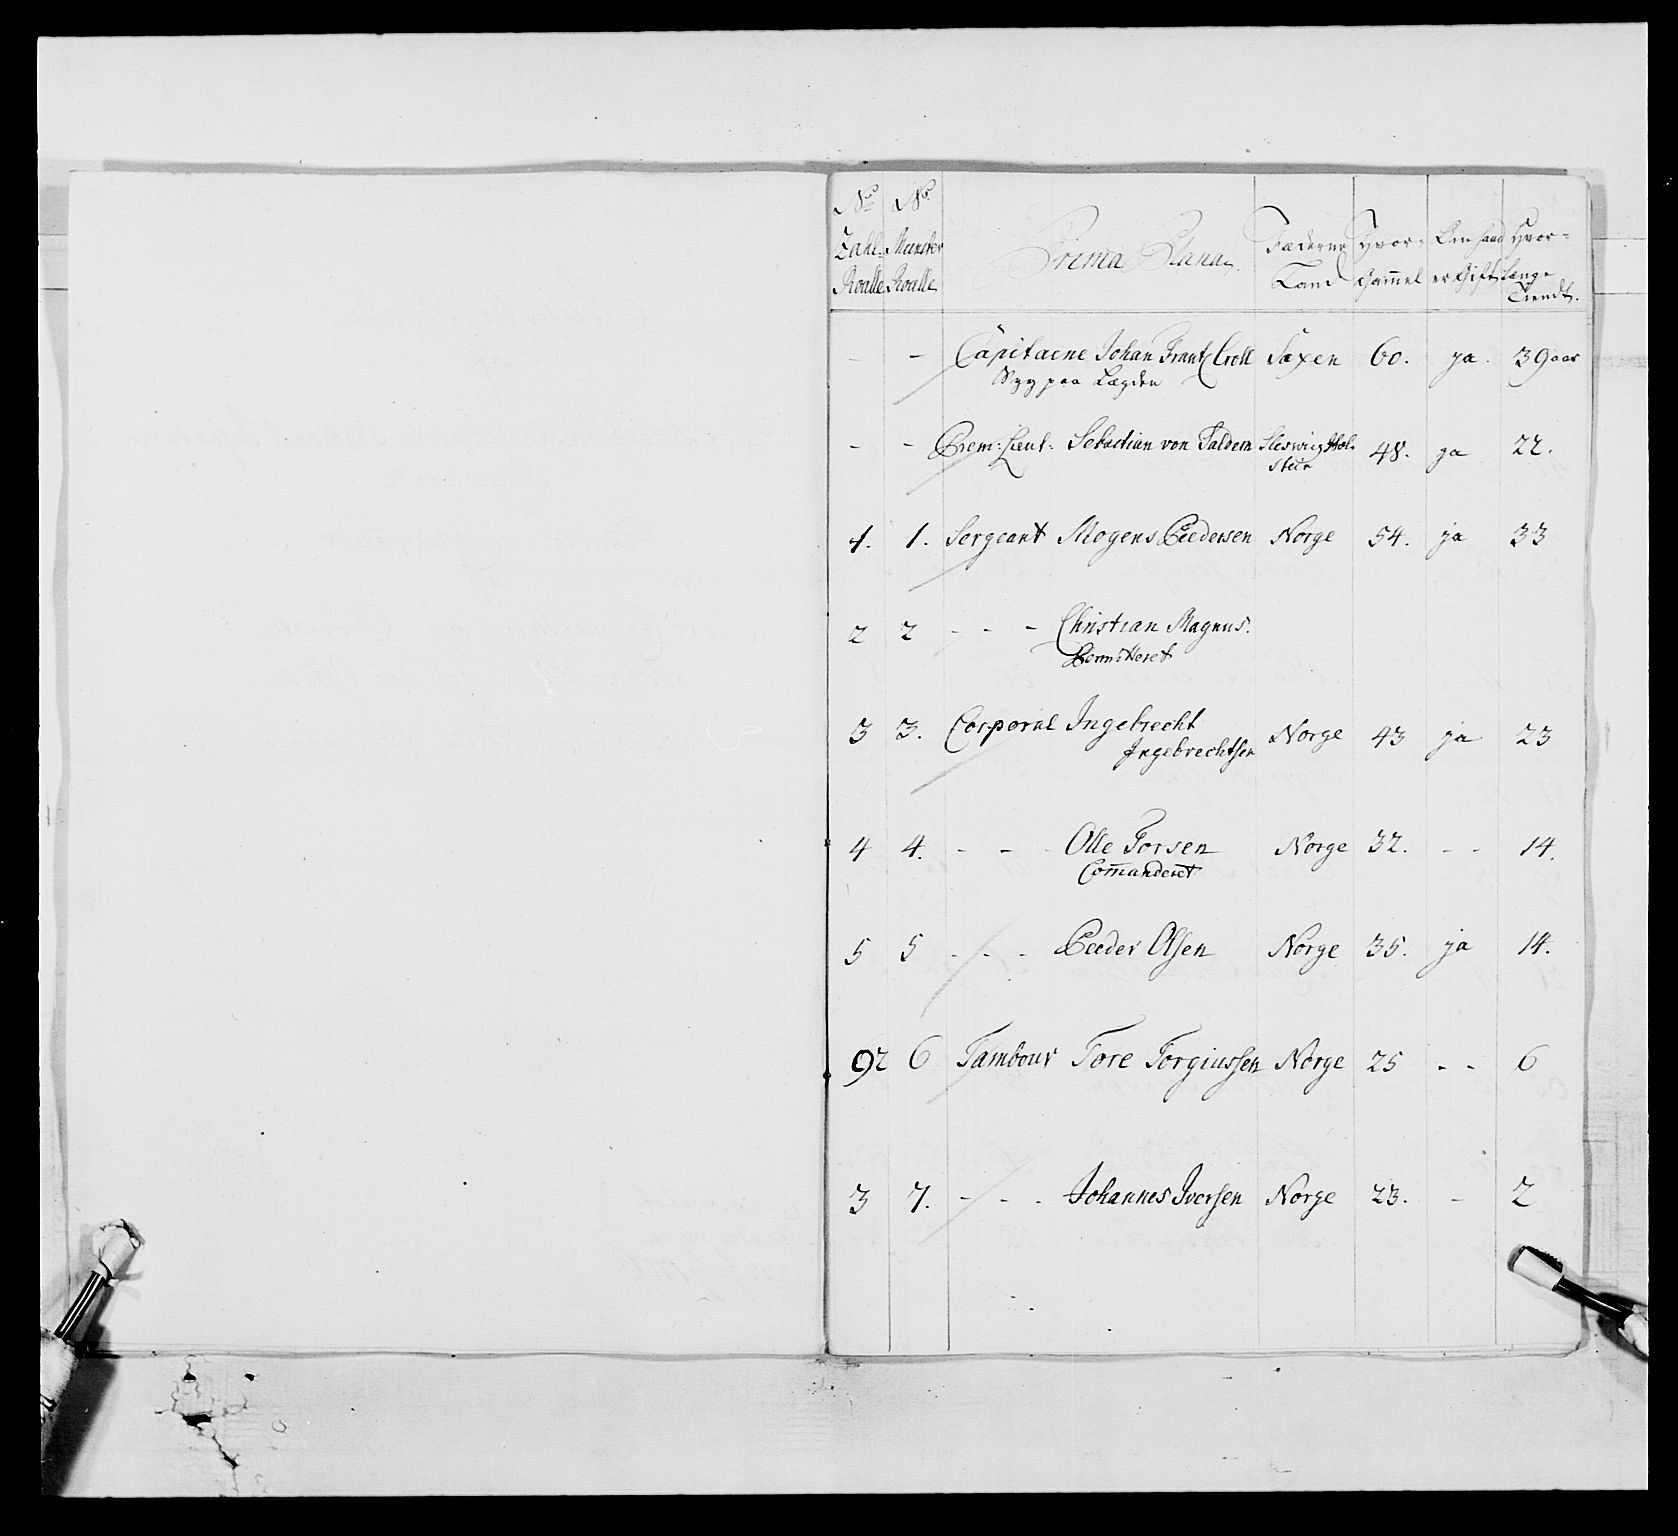 No No
Zahl- Munster Prima Plana. Fæderne Hvor- Om hand Hvor-
Roalle Roalle Land Gammel er Gift længe
Tiendt.
- - Capitaine Johan Frantz Croll Saxen 60. ja. 39 aar
Syg paa Lægden
- - Prem: Lieut: Sebastian von Saldern Sleswig Hol- 48. ja 22.
stein
1. 1. Sergeant Mogens Pedersen Norge 54. ja 33
2 2 - - - Christian Magnus.
Permitteret
3 3. Corporal Ingebrecht Norge 43 ja 23
Ingebrechtsen
4 4. - - Olle Torsen Norge 32. - - 14.
Comanderet
5 5 - - - Peeder Olsen Norge 35. ja 14.
92 6 Tambour Tore Torgiussen Norge 25 - - 6
3 7. - - - Johannes Iversen Norge 23. - 2